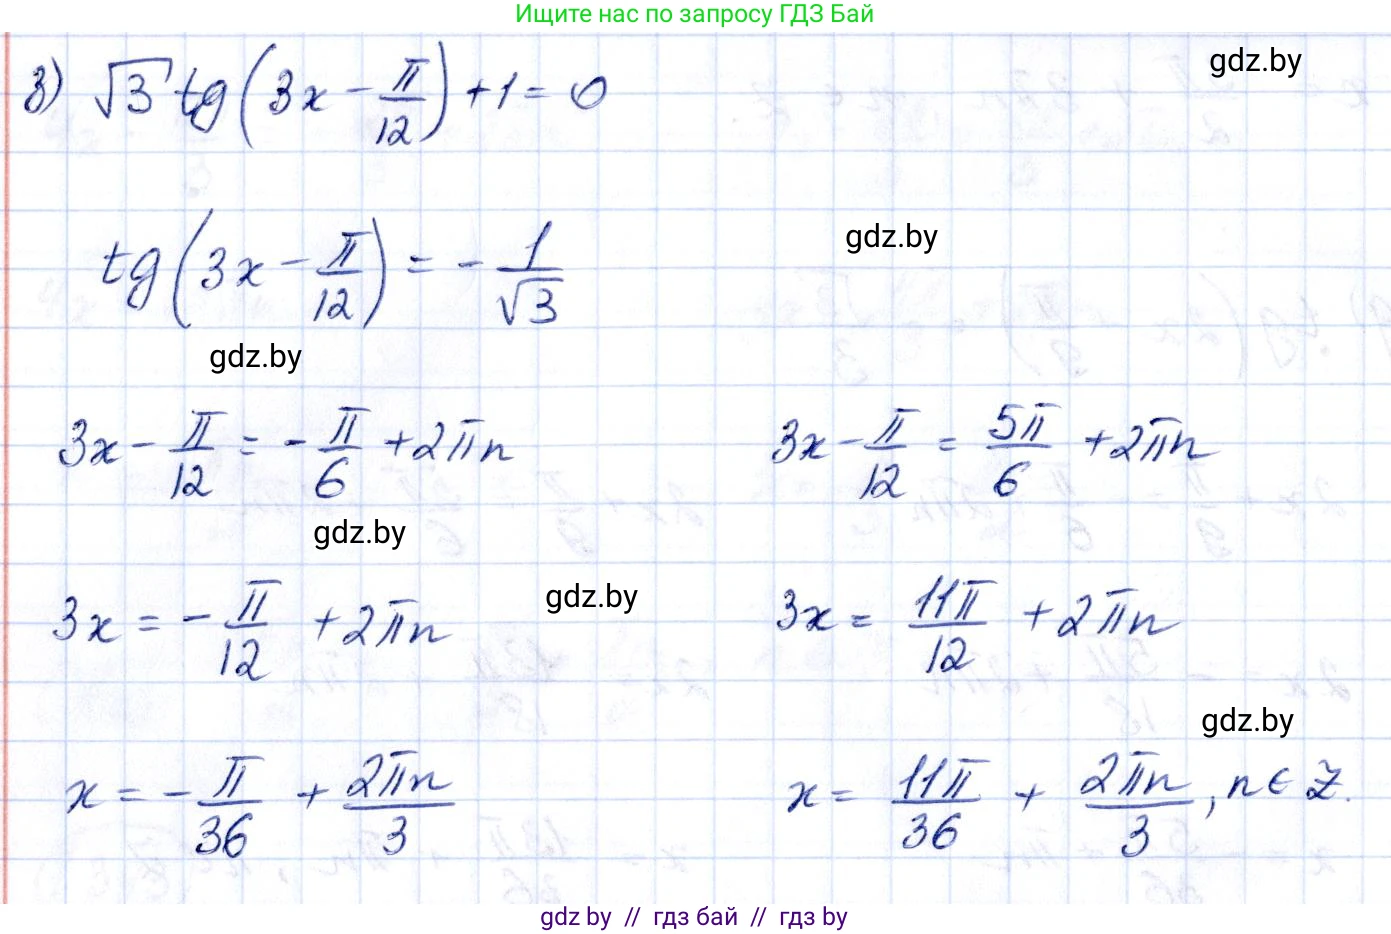 Ищите нас по запросу ГДЗ Бай
gdz.by
з) √3 tg(3x - π/12) + 1 = 0
gdz.by
tg(3x - π/12) = - 1/√3
gdz.by
3x - π/12 = - π/6 + 2πn    3x - π/12 = 5π/6 + 2πn
gdz.by
gdz.by
3x = - π/12 + 2πn    3x = 11π/12 + 2πn
gdz.by
x = - π/36 + 2πn/3    x = 11π/36 + 2πn/3, n ∈ Z.
gdz by // гдз бай // гдз by